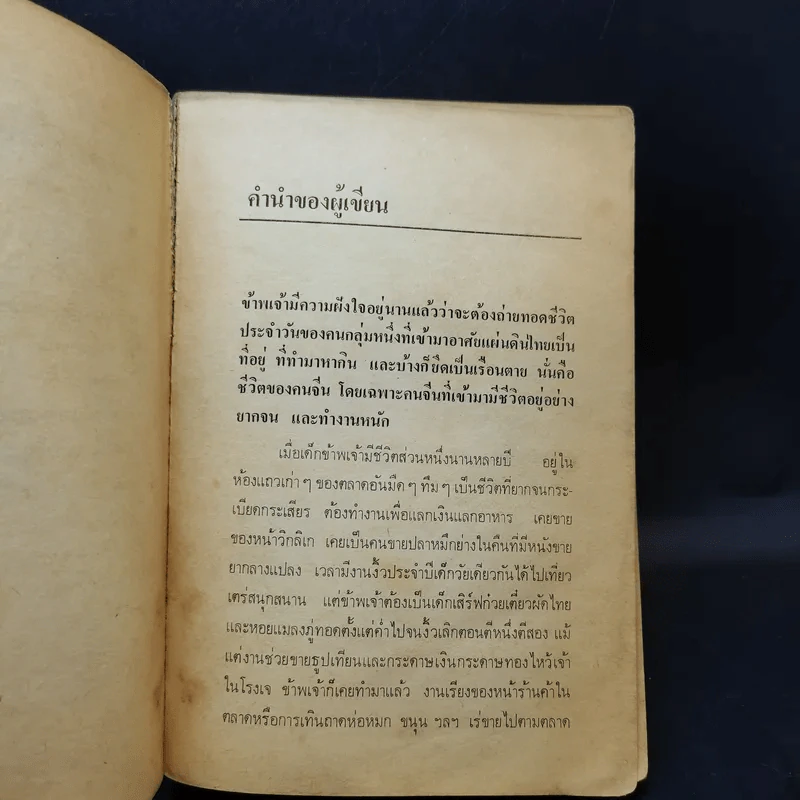 คำนำของผู้เขียน
ข้าพเจ้ามีความฝังใจอยู่นานแล้วว่าจะต้องถ่ายทอดชีวิต
ประจำวันของคนกลุ่มหนึ่งที่เข้ามาอาศัยแผ่นดินไทยเป็น
ที่อยู่ ที่ทำมาหากิน และบ้างก็ยึดเป็นเรือนตาย นั่นคือ
ชีวิตของคนจีน โดยเฉพาะคนจีนที่เข้ามามีชีวิตอยู่อย่าง
ยากจน และทำงานหนัก
เมื่อเด็กข้าพเจ้ามีชีวิตส่วนหนึ่งนานหลายปี อยู่ใน
ห้องแถวเก่า ๆ ของตลาดอันมืด ๆ ทึม ๆ เป็นชีวิตที่ยากจนกระ-
เบียดกระเสียร ต้องทำงานเพื่อแลกเงินแลกอาหาร เคยขาย
ของหน้าวิกลิเก เคยเป็นคนขายปลาหมึกย่างในคืนที่มีหนังขาย
ยากลางแปลง เวลามีงานงิ้วประจำปีเด็กวัยเดียวกันได้ไปเที่ยว
เตร่สนุกสนาน แต่ข้าพเจ้าต้องเป็นเด็กเสิร์ฟก๋วยเตี๋ยวผัดไทย
และหอยแมลงภู่ทอดตั้งแต่ค่ำไปจนงิ้วเลิกตอนตีหนึ่งตีสอง แม้
แต่งานช่วยขายธูปเทียนและกระดาษเงินกระดาษทองไหว้เจ้า
ในโรงเจ ข้าพเจ้าก็เคยทำมาแล้ว งานเรียงของหน้าร้านค้าใน
ตลาดหรือการเทินถาดห่อหมก ขนุน ฯลฯ เร่ขายไปตามตลาด